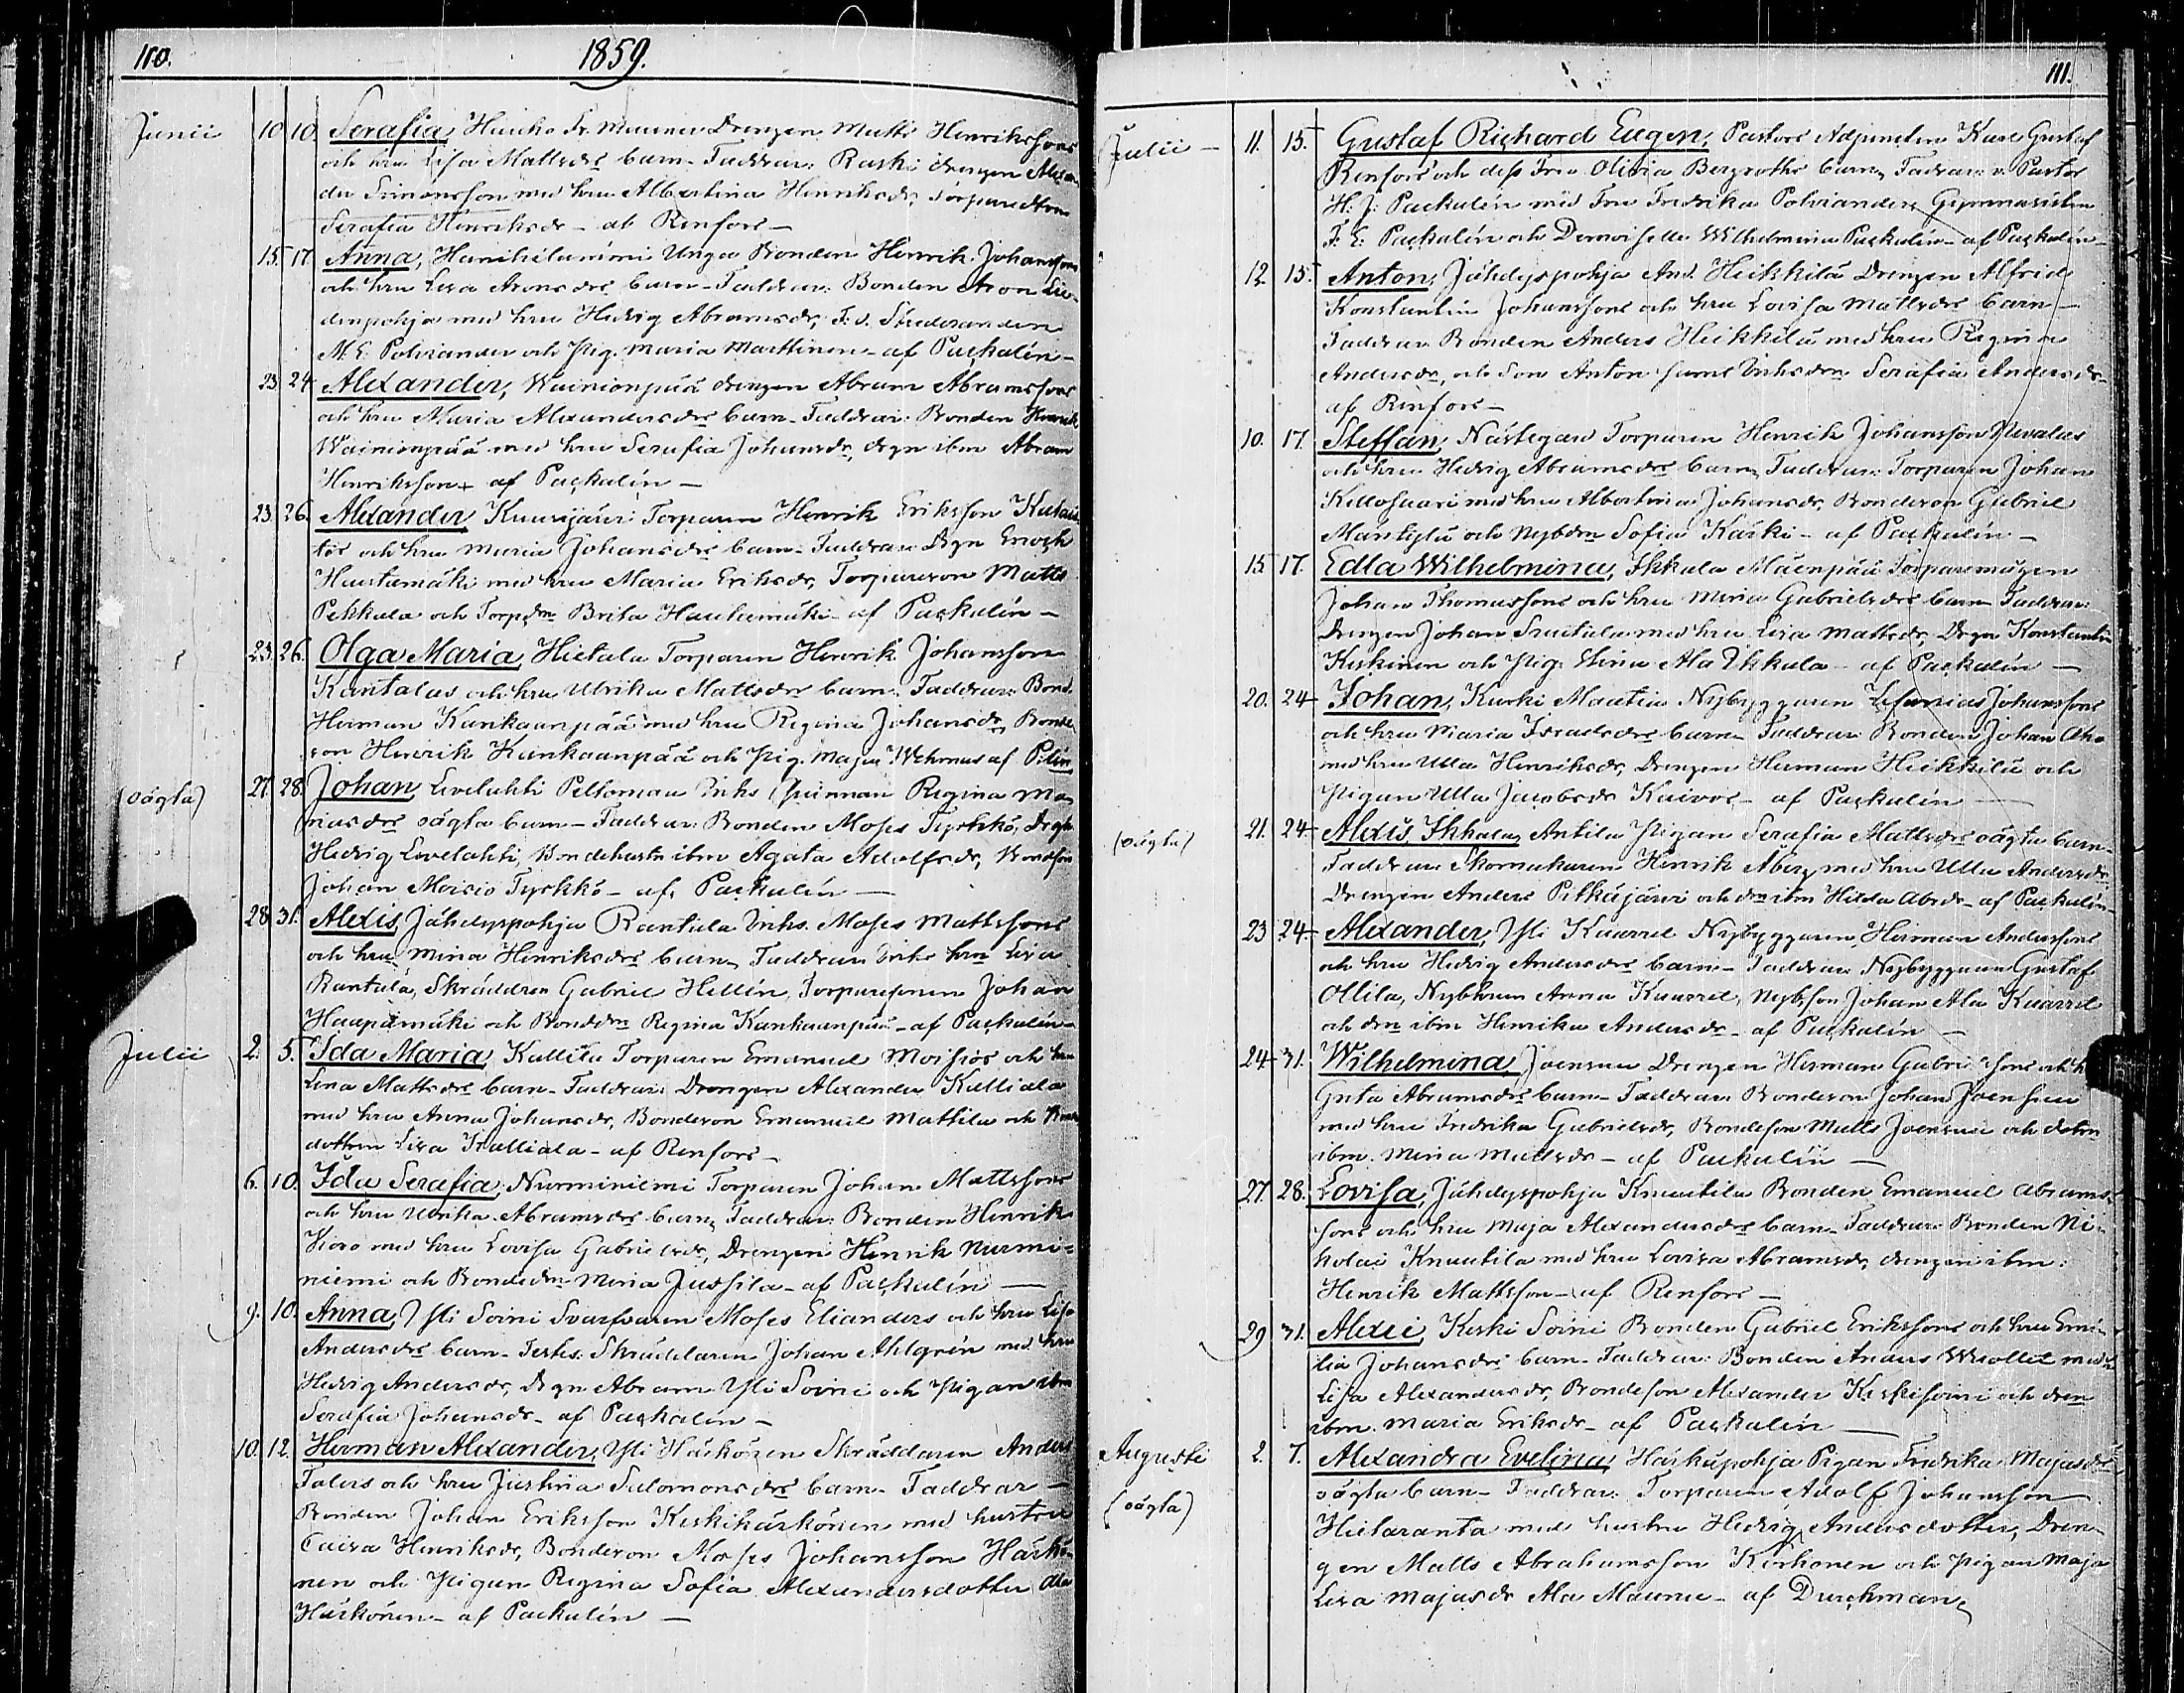 110.
1859.
Junii 10 10. Serafia, Hauho Fr. Maunu Drengen Matts Henrikssons
och hru Lisa Mattsdrs barn. Faddrar: Raski drengen Alexan-
der Simonsson med hru Albertina Henriksdr, Torparedtrn
Serafia Henriksdr – af Renfors –
15. 17. Anna, Hanhiluomi Unga Bonden Henrik Johanssons
och hru Lisa Aronsdrs barn – Faddrar: Bonden Aron Lü-
denpohja med hru Hedvig Abramsdr, F.d. Studeranden
M. E. Polviander och Pig. Maria Marttinen – af Packalén –
23. 24. Alexander, Wainionpää drengen Abram Abramssons
och hru Maria Alexandersdrs barn – Faddrar: Bonden Henrik
Wainionpää med hru Serafia Johansdr, drgn ibm Abram
Henriksson – af Packalén –
23. 26. Alexander, Kuusijärvi Torparen Henrik Eriksson
och hru Maria Johansdrs barn – Faddrar: Drgn Enoch
Hautamäki med hru Maria Eriksdr, Torpareson Matts
Pekkala och Torp.drn Brita Hautamäki – af Packalén –
23. 26. Olga Maria, Hietala Torparen Henrik Johansson
Kantalas och hru Ulrika Mattsdrs barn. Faddrar: Bond.
Herman Kankaanpää med hru Regina Johansdr, Bonde-
son Henrik Kankaanpää och Pig. Maja Wehmas af P:lén
(oägta) 27. 28. Johan, Livelahti Peltomaa Inhs qvinnan Regina Ma-
riasdrs oägta barn – Faddrar: Bonden Moses Tyrkkö, Drgn
Hedvig Livelahti, Bondehustr ibm Agata Adolfsdr, Bondeson
Johan Moisio Tyrkkö – af Packalén –
28. 31. Alexis, Jähdyspohja Rantala Inhs. Moses Mattssons
och hru Mina Henriksdrs barn, Faddrar: Inhs hru Lisa
Rantala, Skräddren Gabriel Hellén, Torparesonen Johan
Haapamäki och Bonddrn Regina Kankaanpää – af Packalén –
Julii 2. 5. Ida Maria, Kallila Torparen Emanuel Moisios och hru
Lena Mattsdrs barn – Faddrar: Drengen Alexander Kalliala
med hru Anna Johansdr, Bondeson Emanuel Mattila och Bonde
dottren Lisa Kalliala – af Renfors –
6. 10. Ida Serafia, Nurminiemi Torparen Johan Mattssons
och hru Ulrika Abramsdrs barn, Faddrar: Bonden Henrik
Kiovo med hru Lovisa Gabrielsdr, Drengen Henrik Nurmi-
niemi och Bondedrn Mina Jussila – af Packalén –
9. 10. Anna, Yli Soini Svarfvaren Moses Elianders och hru Lisa
Andersdrs barn – Testes: Skräddaren Johan Ahlgrén med hru
Hedvig Andersdr, Drgn Abram Yli Soini och Pigan ibm
Serafia Johansdr – af Packalén –
10. 12. Herman Alexander, Yli Härkönen Skräddaren Anders
Falers och hru Justina Salomonsdrs barn – Faddrar –
Bonden Johan Eriksson Keskihärkönen med hustru
Caisa Henriksdr, Bondeson Moses Johansson Härkö-
nen och Pigan Regina Sofia Alexandersdotter Ala
Härkönen – af Packalén –
111.
Julii – 11. 15. Gustaf Richard Eugen, Pastors Adjuncten Karl Gustaf
Renfors och dess Fru Olivia Bergroths barn, Fadrar: v. Pastor
H. J. Packalén med Fru Fredrika Polviander, Gymnasisten
F. E. Packalén och Demoiselle Wilhelmina Packalén – af Packalén –
12. 15. Anton, Jähdyspohja And. Heikkilä Drengen Alfred
Konstantin Johanssons och hru Lovisa Mattsdrs barn –
Faddrar: Bonden Anders Heikkilä med hru Regina
Andersdr, och Son Anton samt Inhsdrn Serafia Andersdr
af Renfors –
10. 17. Steffan, Nästegard Torparen Henrik Johansson Nivalas
och hru Hedvig Abramsdrs barn, Faddrar: Torparen Johan
Kellosaari med hru Albertina Johansdr, Bondeson Gabriel
och Nybdrn Sofia Kaski – af Packalén –
15 17. Edla Wilhelmina, Ikkala Mäenpää Torparemågen
Johan Thomassons och hru Mina Gabrielsdrs barn Faddrar:
Drengen Johan med hru Lisa Mattsdr, Drgn Konstantin
Keskinen och Pig. Stina Ala Ikkala – af Packalén –
20. 24 Johan, Kurki Mautia Nybyggaren Zefanias Johanssons
och hru Maria Israelsdrs barn – Faddrar: Bonden Johan Aho
med hru Ulla Henriksdr, Drengen Herman Heikkilä och
Pigan Ulla Jacobsdr Kaivos – af Packalén –
(oägta) 21. 24 Alexis, Ikkala, Antila Pigan Serafia Mattsdrs oägta barn –
Faddrar: Skomakaren Henrik Åberg med hru Ulla Andersdr
Drengen Anders Pitkäjärvi och drn ibm Hilda Absdr – af Packalén –
23 24 Alexander, Yli Kuarrel Nybyggaren Herman Anderssons
och hru Hedvig Andersdrs barn – Faddrar: Nybyggaren Gustaf
Ollila, Nybhrun Anna Kuarrel, Nybsson Johan Ala Kuarrel
och drn ibm Henrika Andersdr – af Packalén –
24 31. Wilhelmina, Joensuu Drengen Herman Gabrielssons och h
Greta Abramsdrs barn – Faddrar: Bondeson Johan Joensuu
med hru Fredrika Gabrielsdr, Bondeson Matts Joensuu och dotrn
ibm. Mina Mattsdr – af Packalén –
27. 28. Lovisa, Jähdyspohja Knuutila Bonden Emanuel Abrams-
sons och hru Maja Alexandersdrs barn – Faddrar: Bonden Ni-
kolai Knuutila med hru Lovisa Abramsdr, drengen ibm:
Henrik Mattsson – af Renfors –
29 31. Alexei, Keski Soini Bonden Gabriel Erikssons och hru Emi-
lia Johansdrs barn – Faddrar: Bonden Anders med h
Lisa Alexandersdr, Bondeson Alexander Keskisoini och dren
ibm. Maria Eriksdr – af Packalén –
Augusti 2. 7. Alexandra Evelina, Härkäpohja Pigan Fredrika Majasdrs
(oägta) oägta barn – Faddrar: Torparen Adolf Johansson
Hietaranta med hustru Hedvig Andersdotter, Dren-
gen Matts Abrahamsson Korhonen och Pigan Maja
Lisa Majasdr Ala Maunu – af Durchman,